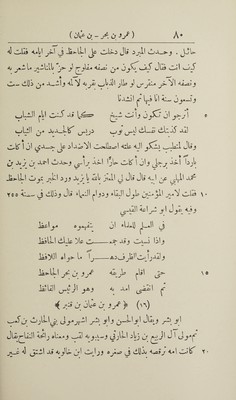 ٨٠ (عمرو بن بحر – بن عثمان)
حائل . وحدث المبرد قال دخلت على الجاحظ في آخر ايامه فقلت له
كيف انت فقال كيف يكون من نصفه مفلوج لو حز بالمناشير ما شعر به
ونصفه الآخر منقرس لو طار الذباب بقربه لآلمه وأشد من ذلك ست
وتسعون سنة انا فيها ثم انشدنا
أترجو ان تكون وأنت شيخ كما قد كنت ايام الشباب
لقد كذبتك نفسك ليس ثوب دريس كالجديد من الثياب
وقال لمتطبب يشكو اليه علته اصطلحت الاضداد على جسدي ان أكلت
بارداً أخذ برجلي وان أكلت حارّاً اخذ برأسي وحدث احمد بن يزيد بن
محمد المهلبي عن ابيه قال قال لي المعتز بالله يا يزيد ورد الخبر بموت الجاحظ
١٠ فقلت لامير المؤمنين طول البقاء ودوام النعماء قال وذلك في سنة ٢٥٥
وفيه يقول ابو شراعة القيسي
في العلم للعلماء ان يتفهموه مواعظ
واذا نسيت وقد جمعـ ـت علا عليك الحافظ
ولقد رأيت الظرف دهـ ـراً ما حواه اللافظ
١٥ حتى اقام طريقه عمرو بن بحر الجاحظ
ثم انقضى امد به وهو الرئيس الفائظ
(١٦) ﴿ عمرو بن عثمان بن قنبر ﴾
ابو بشر ويقال ابو الحسن وابو بشر اشهر مولى بني الحارث بن كعب
ثم مولى آل الربيع بن زياد الحارثي وسيبويه لقب ومعناه رائحة التفاح يقال
٢٠ كانت امه ترقصه بذلك في صغره ورأيت ابن خالويه قد اشتق له غير